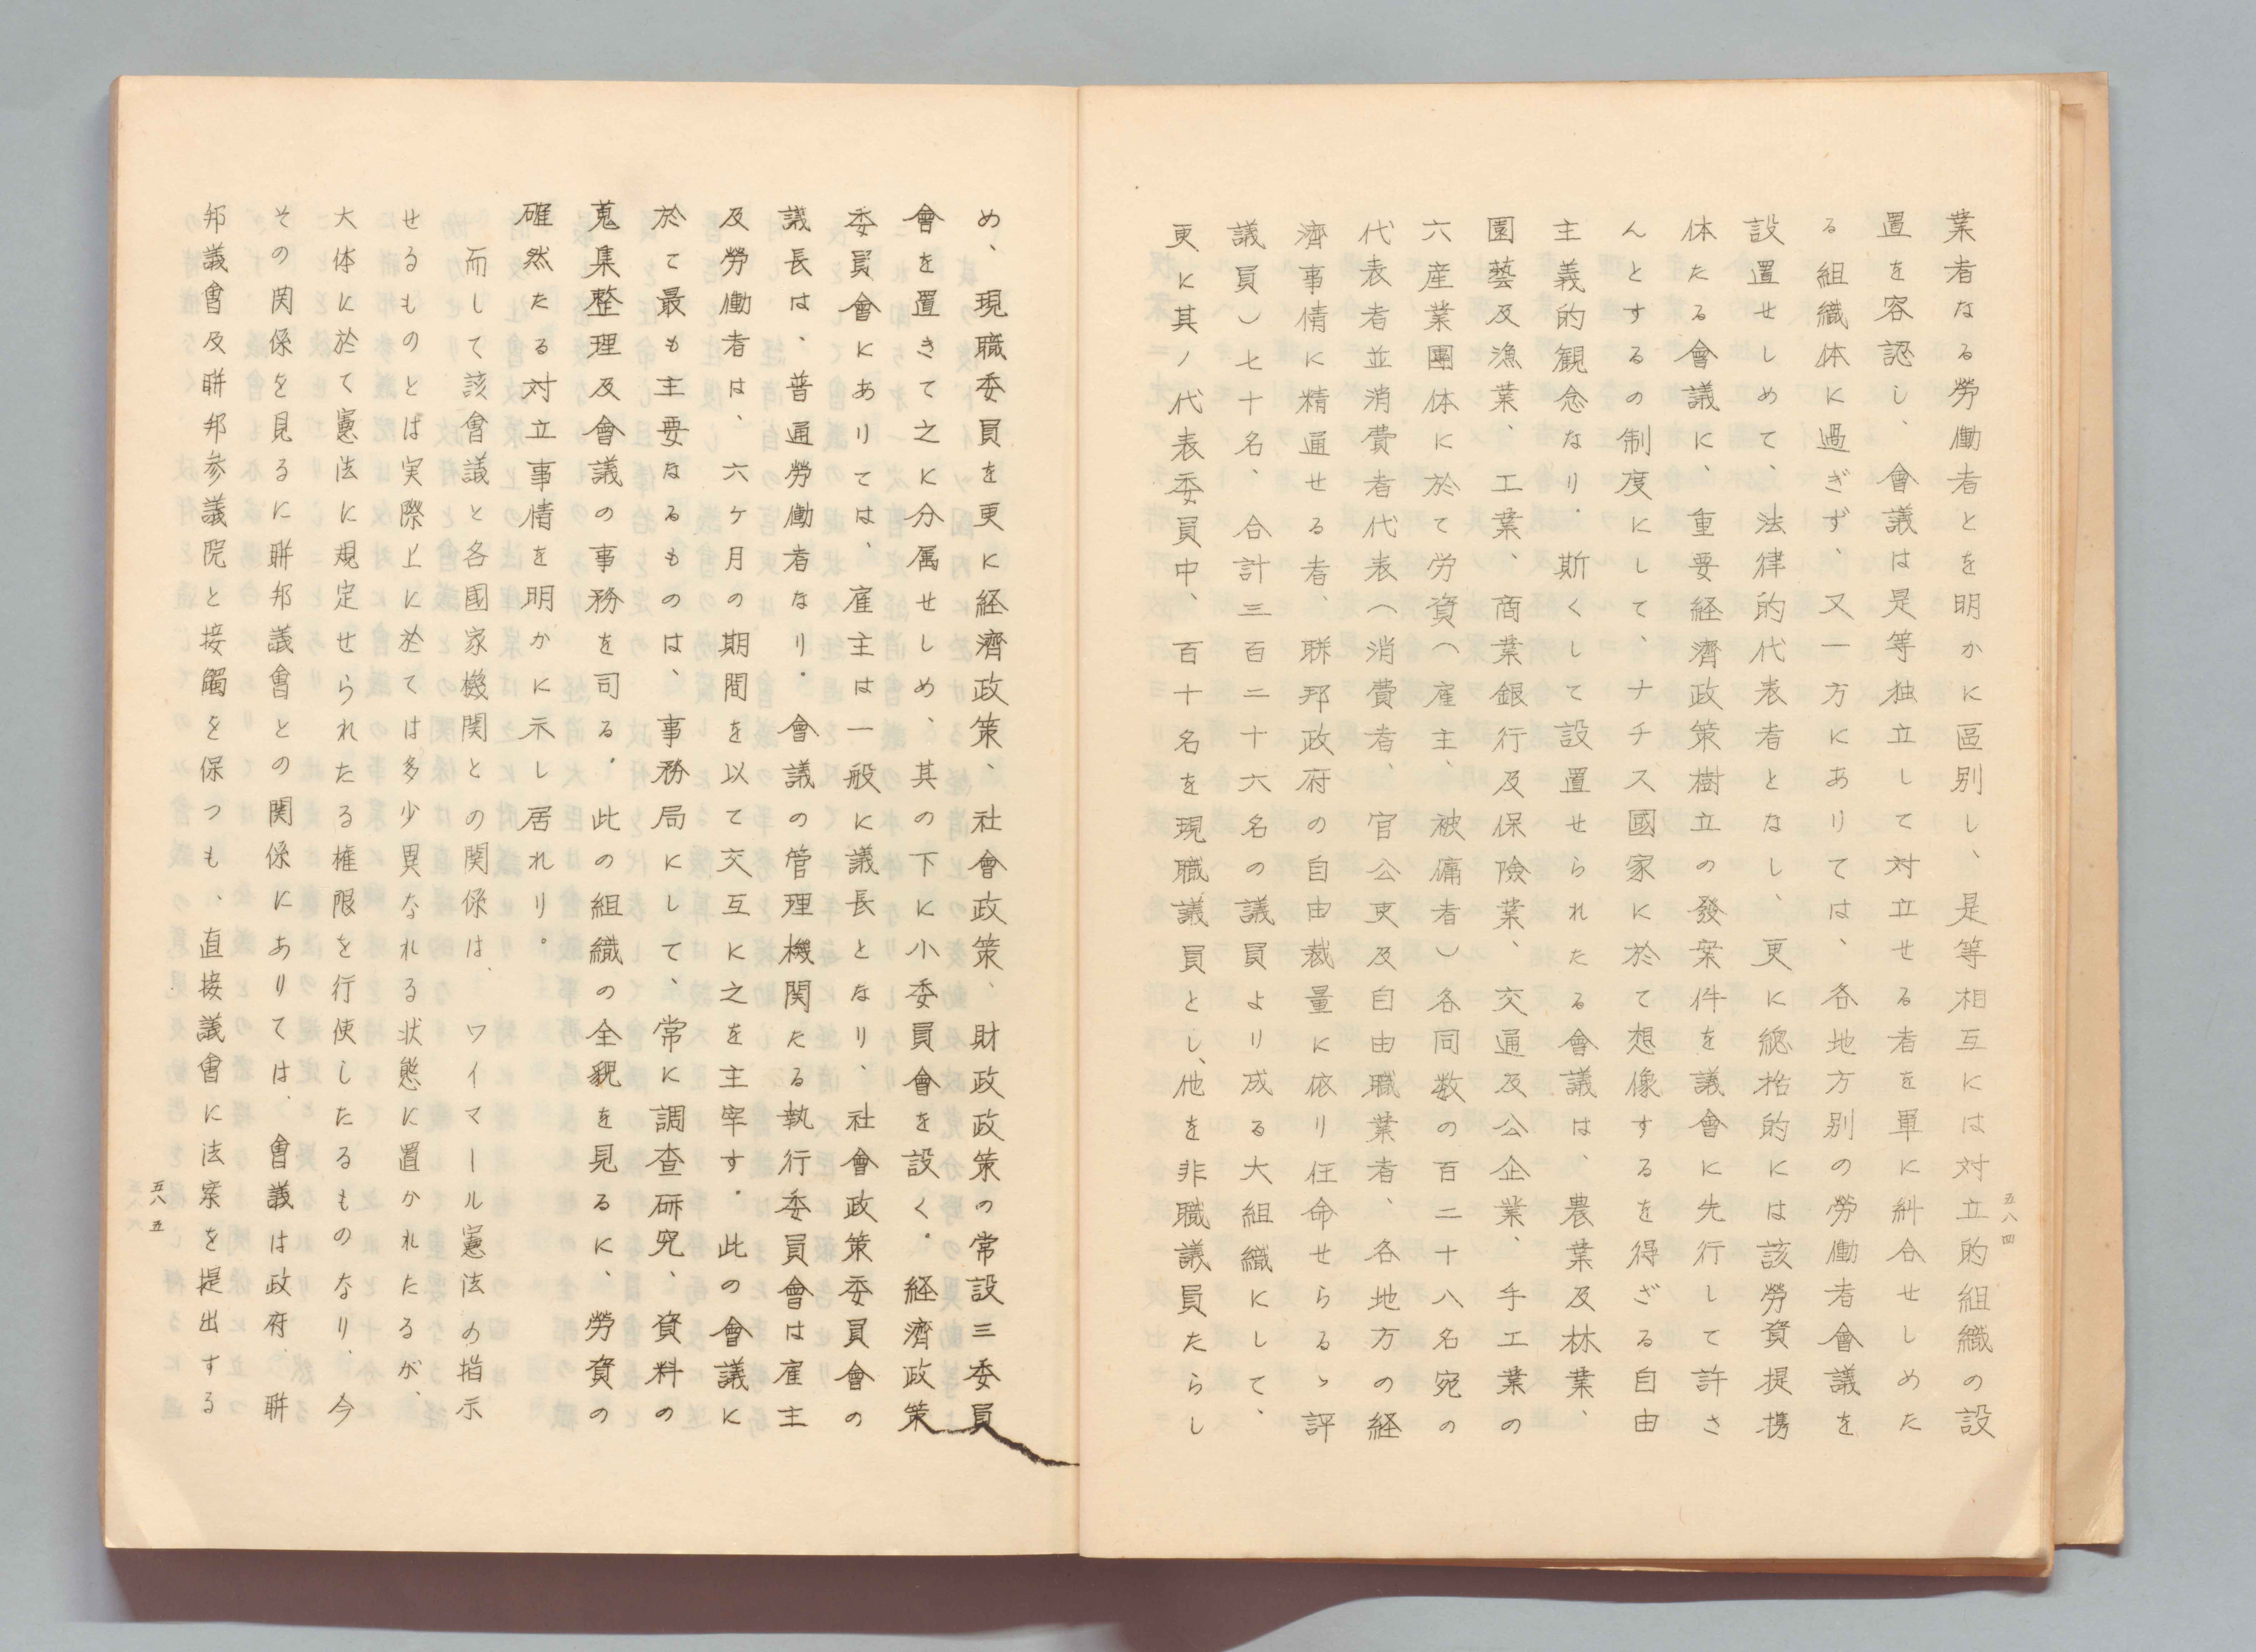 業者なる勞働者とを明かに區別し、是等相互には対立的組織の設
置を容認し、會議は是等独立して対立せる者を單に糾合せしめた
る組織体に過ぎず、又一方にありては、各地方別の勞働者會議を
設置せしめて、法律的代表者となし、更に總括的には該勞資提携
体たる會議に、重要経濟政策樹立の發案件を議會に先行して許さ
んとするの制度にして、ナチス國家に於て想像するを得ざる自由
主義的観念なり．斯くして設置せられたる會議は、農業及林業、
園藝及漁業、工業、商業銀行及保險業、交通及公企業、手工業の
六産業團体に於て労資（雇主、被傭者）各同数の百二十八名宛の
代表者並消費者代表（消費者、官公吏及自由職業者、各地方の経
濟事情に精通せる者、聯邦政府の自由裁量に依り任命せらるゝ評
議員）七十名、合計三百二十六名の議員より成る大組織にして、
更に其ノ代表委員中、百十名を現職議員とし、他を非職議員たらし
五八四
め、現職委員を更に経濟政策、社會政策、財政政策の常設三委員
會を置きて之に分属せしめ、其の下に小委員會を設く．経濟政策
委員會にありては、雇主は一般に議長となり、社會政策委員會の
議長は、普通勞働者なり．會議の管理機関たる執行委員會は雇主
及勞働者は、六ヶ月の期間を以て交互に之を主宰す．此の會議に
於て最も主要なるものは、事務局にして、常に調査研究、資料の
蒐集整理及會議の事務を司る．此の組織の全貌を見るに、勞資の
確然たる対立事情を明かに示し居れり。
而して該會議と各國家機関との関係は、ワイマール憲法の指示
せるものとは実際上に於ては多少異なれる状態に置かれたるが、
大体に於て憲法に規定せられたる権限を行使したるものなり、今
その関係を見るに聯邦議會との関係にありては、會議は政府、聯
邦議會及聯邦参議院と接觸を保つも、直接議會に法案を提出する
五八五